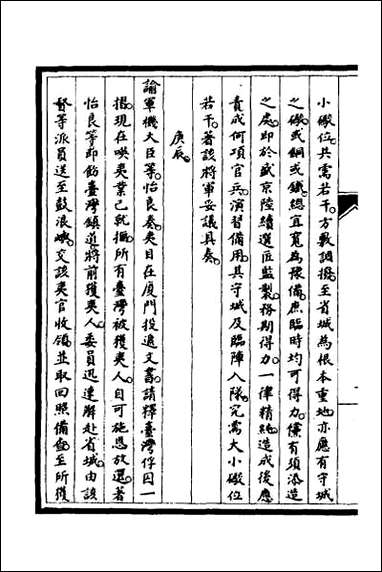 小礮位共需若干方敷調撥至省城為根本重地亦應有守城
之礮或銅或鐵總宜寬為豫備庶臨時均可得力儻有須添造
之處即於盛京陸續選匠監製務期得力一律精純造成後應
責成何項官兵演習備用其守城及臨陣入隊究需大小礮位
若干著該將軍妥議具奏
庚辰
諭軍機大臣等怡良奏夷目在廈門投遞文書請釋臺灣俘囚一
摺現在㗸夷業已就撫所有臺灣被獲夷人自可施恩放還著
怡良等即飭臺灣鎮道將前獲夷人委員迅速解赴省城由該
督等派員送至鼓浪嶼交該夷官收領並取回照備查至所獲